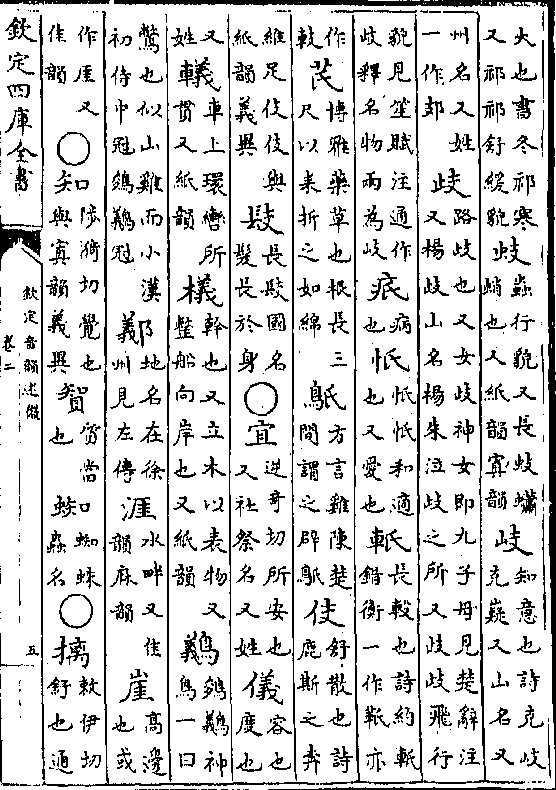 大也書冬祁寒又祁祁舒緩貌蚑蟲行貌又長蚑蠨蛸也又紙韻寘韻岐知意也詩克岐克嶷又山名又
州名又姓一作郂歧路歧也又女歧神女即九子母見楚辭注又楊歧山名楊朱泣歧之所又歧歧飛行
貌見笙賦注通作岐釋名物兩為岐疧病也忯忯忯和適也又愛也軝長轂也詩約軝錯衡一作軧亦
作䡋芪博雅藥草也根長三尺以來折之如綿䳅方言雞陳楚間謂之䳅伎舒散也詩鹿斯之奔
維足伎伎與紙韻義異髲長髲國名髮長於身○宜逆奇切所安也又社祭名又姓儀容也度也
又姓轙車上環轡所貫又紙韻檥幹也又立木以表物又整船向岸也又紙韻鸃鵔鸃神鳥一曰
鷩也似山雞而小漢初侍中冠鵔鸃冠地名在徐州見左傳涯水畔又佳韻麻韻崖高邊也或
作厓又佳韻○知陟漪切覺也與寘韻義異當也蜘蜘蛛蟲名○摛敕伊切舒也通
欽定四庫全書
欽定音韻述微
卷二
五